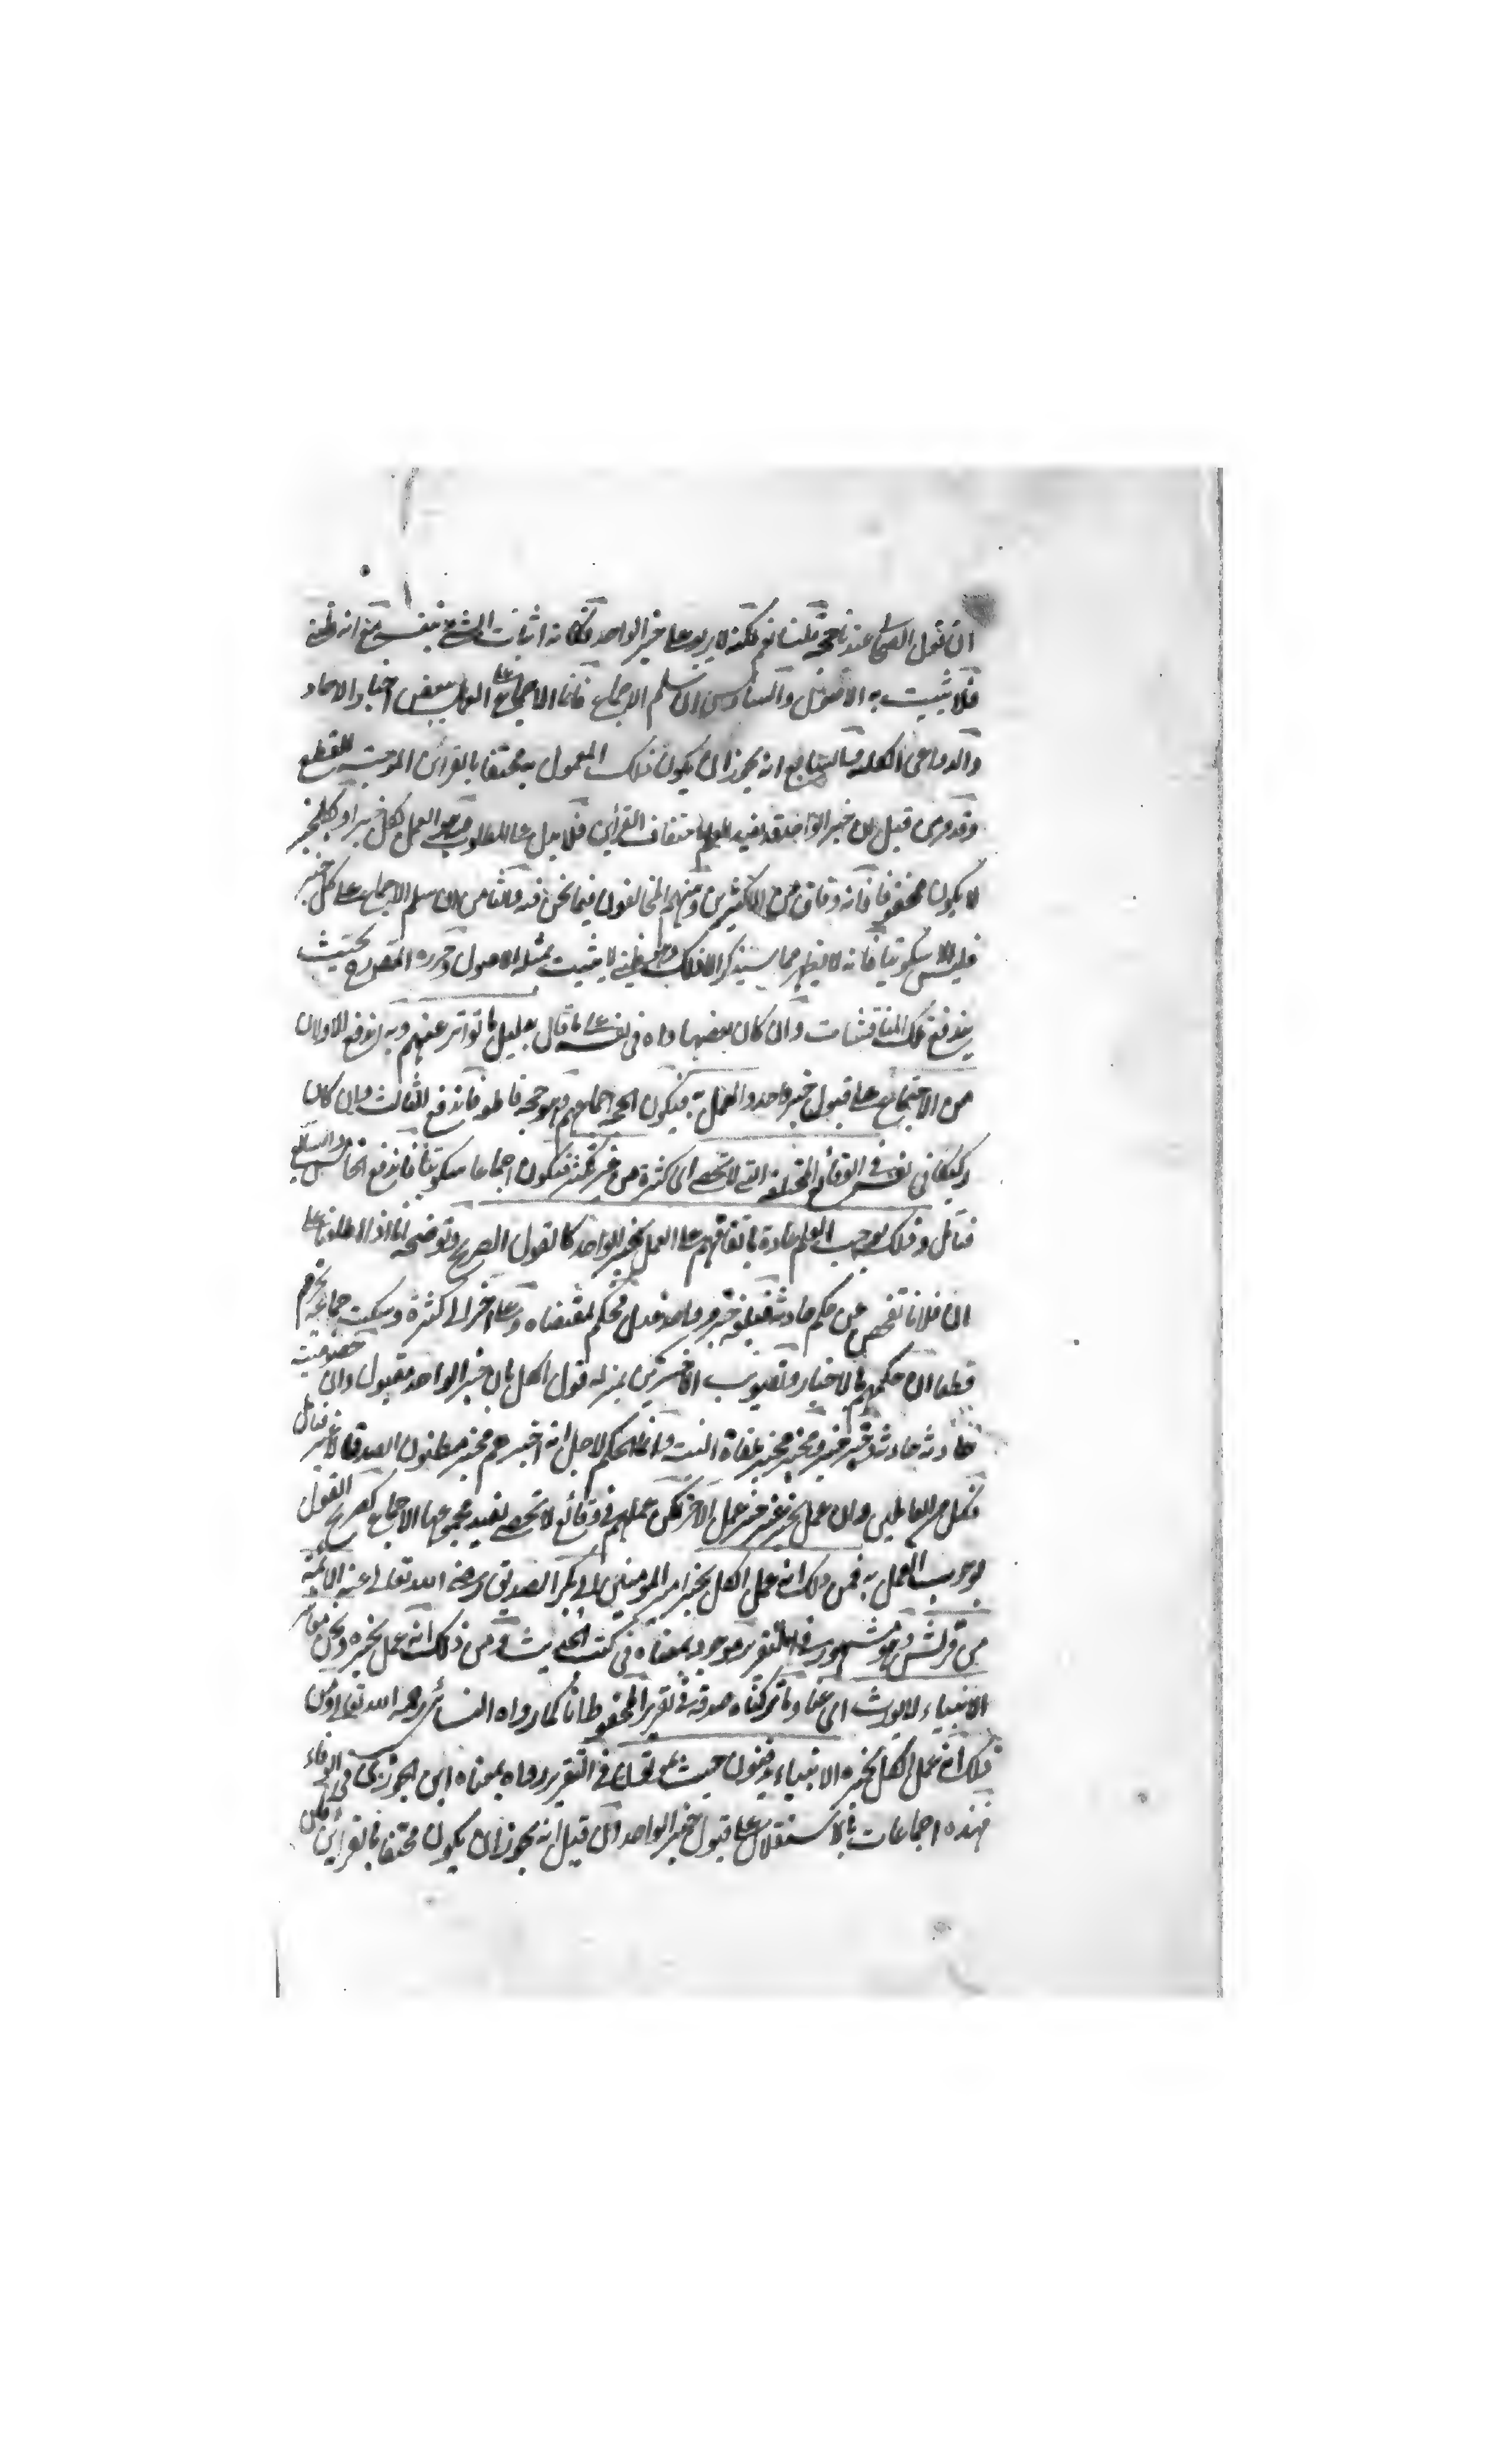 ان قول الصحابي عندنا حجة قلنا نعم لكنه لا يربو على خبر الواحد فكانه اثبات الشئ بنفسه مع انه ظني
فلا يثبت به الاصول والسادس ان سلم الاجماع فانما الاجماع على العمل ببعض اخبار الاحاد
والدواعى الكلية والسابع انه يجوز ان يكون ذلك المعمول به محتفا بالقرائن الموجبة للقطع
وقد مر من قبل ان خبر الواحد قد يفيد العلم باحتفاف القرائن فلا يدل على المطلوب وهو العمل بكل خبر او بخبر
لا يكون محفوفا فانه وفاق من الاكثرين ومنهم المخالفون فيما نحن فيه والثامن ان سلم الاجماع على كل خبر
فليس الا سكوتيا فانه لا يظهر مما سيذكر الا ذلك وهو ظني لا يثبت بمثله الاصول وحرره المصنف بحيث
يندفع تلك المناقشات وان كان بعضها واه في نفسه على ما قال بدليل ما تواتر عنهم وبه اندفع الاولان
من الاجتماع على قبول خبر واحد والعمل به فيكون الحجة اجماعهم وهو حجة قاطعة فاندفع الثالث وان كان
ركيكا في نفسه في الوقائع المختلفة التي لا تحصى اى كثرة من غير نكير فيكون اجماعا سكوتيا فاندفع الخامس والسابع
فتأمل وذلك يوجب العلم عادة باتفاقهم على العمل بخبر الواحد كالقول الصريح وتوضيحه انا اذا اطلعنا على
ان فلانا تفحص عن حكم حادثة فبلغه خبر واحد عدل فحكم بمقتضاه وعلى اخر الى كثرة وسكت جماعة نجزم
قطعا ان حكمهم بالاخبار وتصويب الاخرين بمنزلة قول الكل بان خبر الواحد مقبول وان خصوصية
حادثة حادثة وخبر خبر ومخبر مخبر ملغاة البتة وانما الحكم لاجل انه اخبرهم مخبر مظنون الصدق لا غير فتأمل
فكل من العاملين وان عمل بخبر غير خبر عمل الاخر لكن عملهم في وقائع لا تحصى يفيد مجموعها الاجماع كصريح القول
بوجوب العمل به فمن ذلك انه عمل الكل بخبر امير المؤمنين ابي بكر الصديق رضي الله تعالى عنه الائمة
من قريش وهو مشهور في التقرير موجود بمعناه في كتب الحديث ومن ذلك انه عمل بخبره نحن معاشر
الانبياء لا نورث اى عنا وما تركناه صدقة في تقرير المحفوظ انا كما رواه النسائى رحمه الله تعالى ومن
ذلك انه عمل الكل بخبره الانبياء يدفنون حيث يموتون في التقرير رواه بمعناه ابن الجوزى في الوفاء
فهذه اجماعات بالاستقلال على قبول خبر الواحد وان قيل انه يجوز ان يكون محتفا بالقرائن